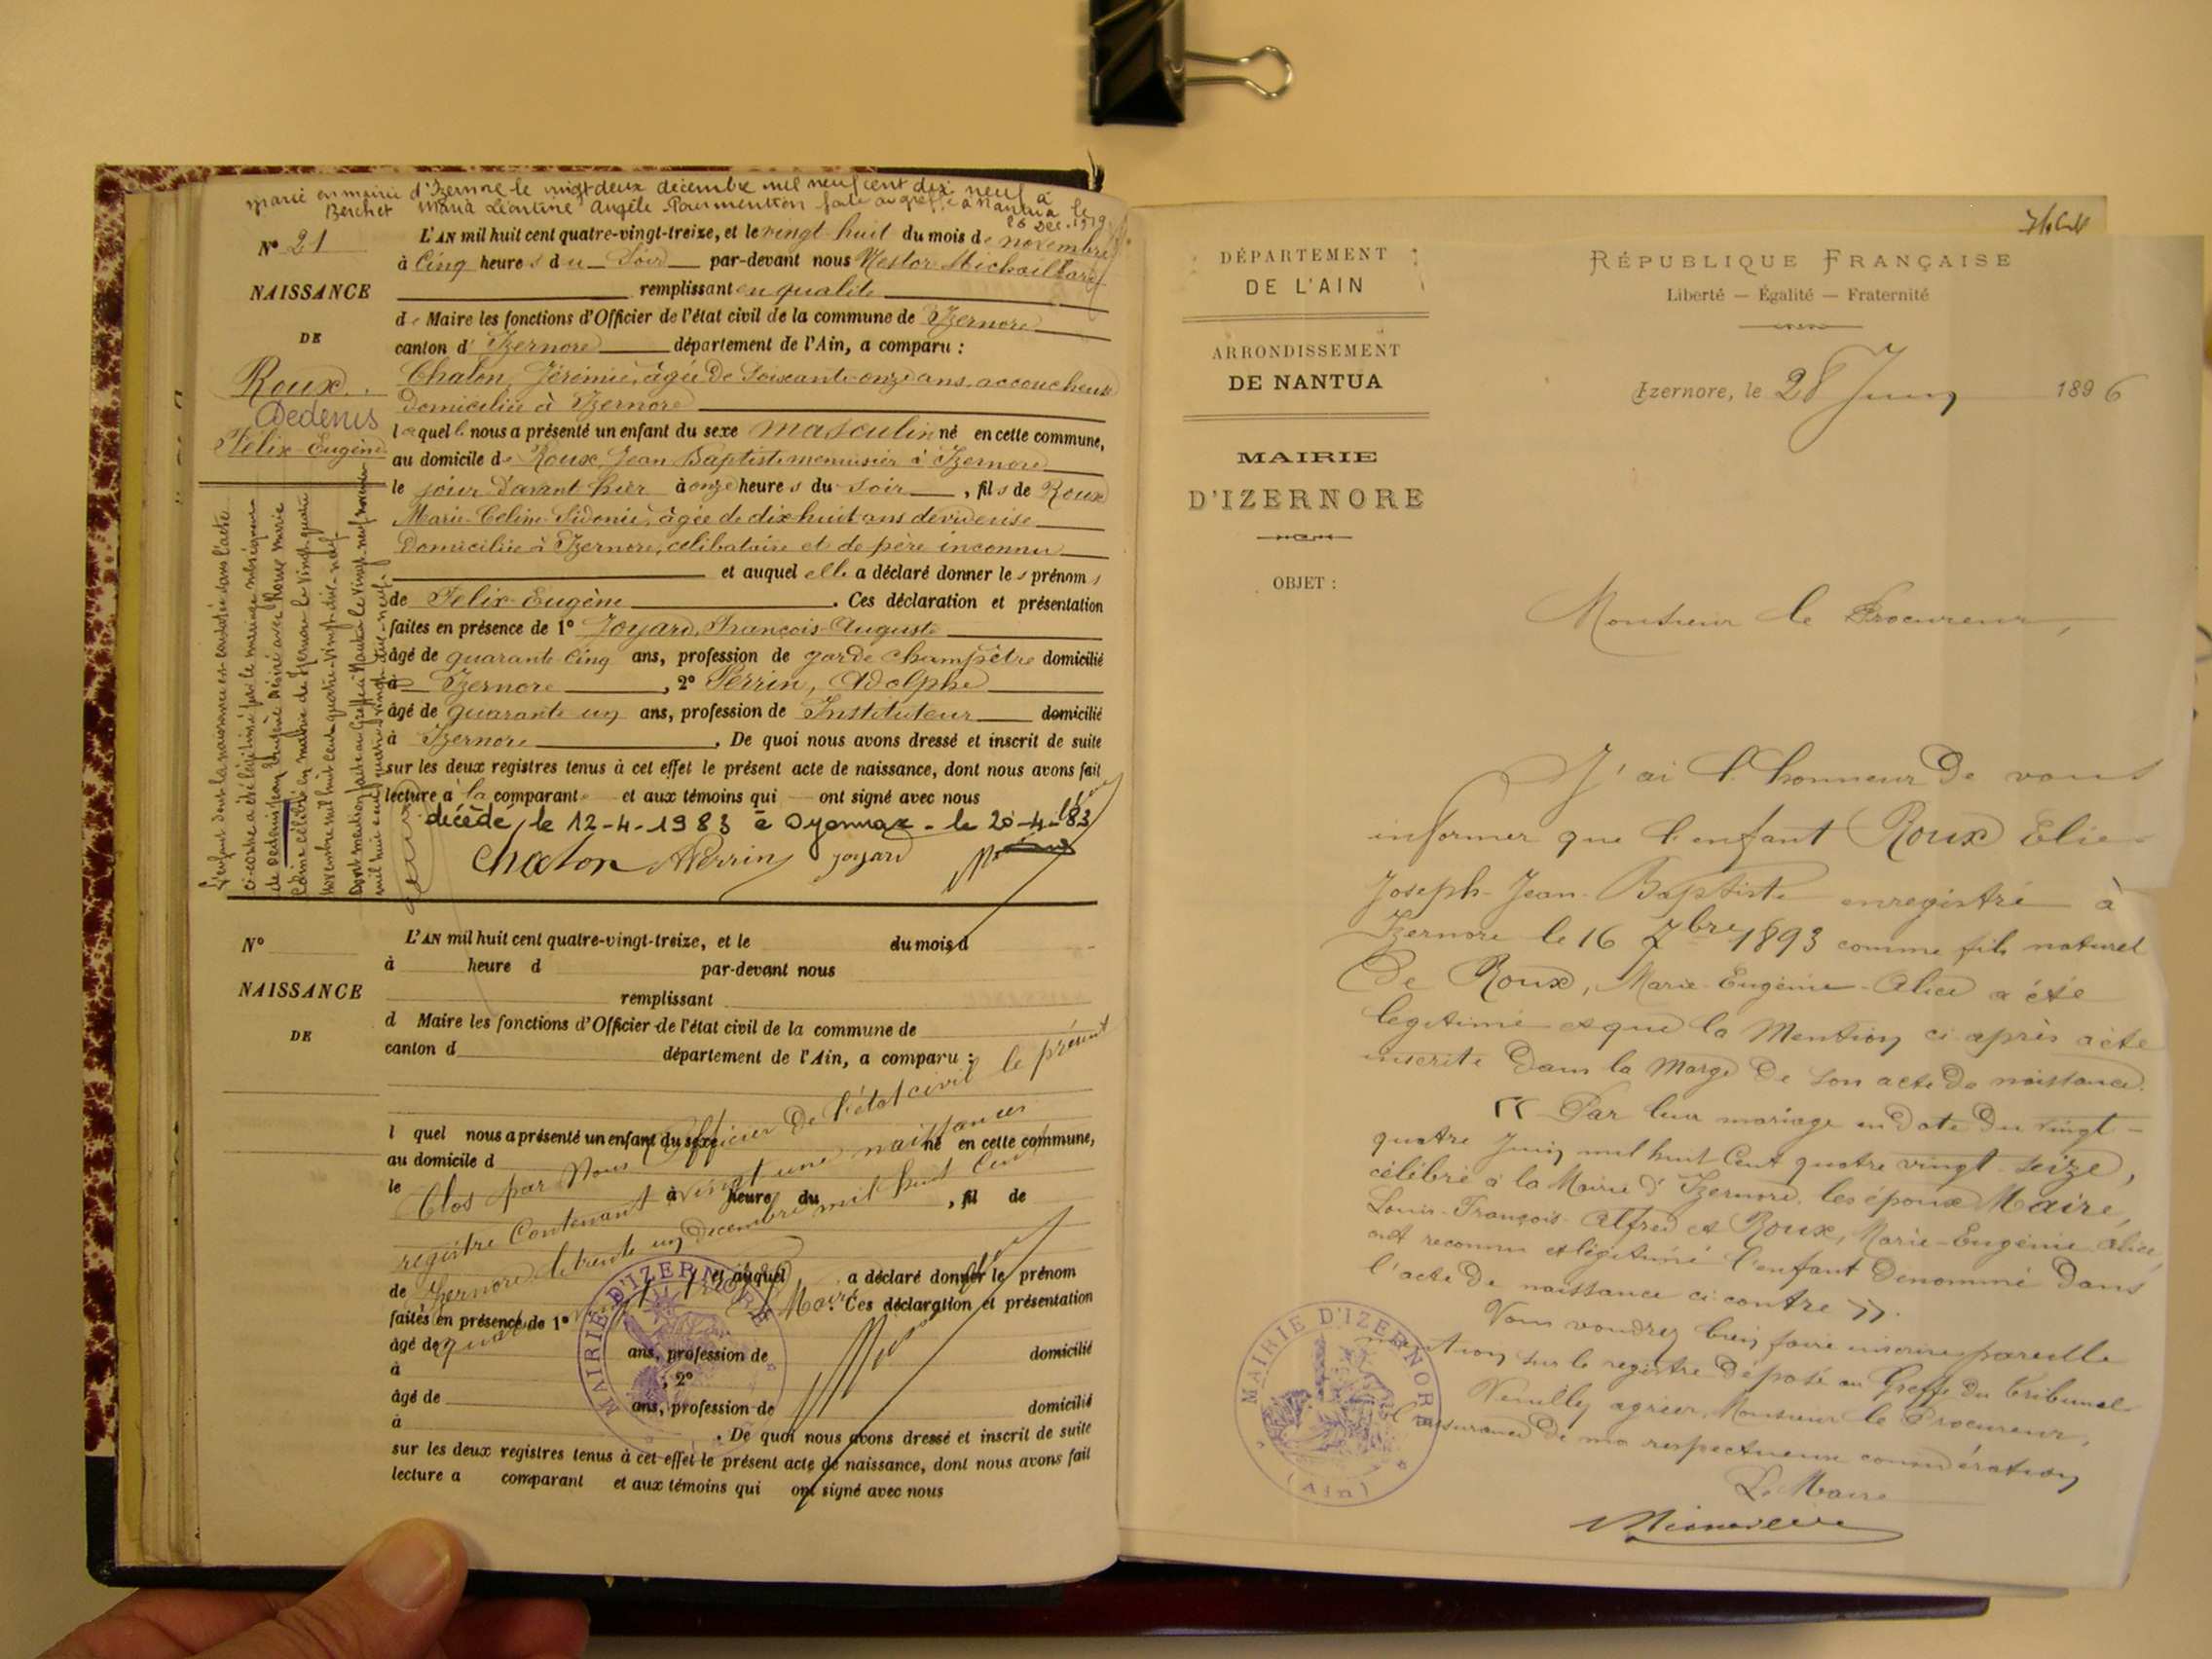 marié en mairie d'Izernore le vingt deux décembre mil neuf cent dix neuf à
Berchet Maria Léontine Angèle. Pour mention faite au greffe à Nantua le
26 Dec. 1919
N° 21
NAISSANCE
DE
Roux
Dedenis
Félix-Eugène
L'AN mil huit cent quatre-vingt-treize, et le vingt huit du mois de novembre
à Cinq heures du Soir par-devant nous Nestor Michaillard
remplissant en qualité
de Maire les fonctions d'Officier de l'état civil de la commune de Izernore
canton d' Izernore département de l'Ain, a comparu :
Chaton, Jérémie, âgée de Soixante-onze ans, accoucheuse
Domiciliée à Izernore
laquelle nous a présenté un enfant du sexe masculin né en cette commune,
au domicile de Roux, Jean Baptiste menuisier à Izernore
le jour d'avant hier à onze heures du soir, fils de Roux
Marie-Céline-Sidonie, âgée de dix huit ans dévideuse
Domiciliée à Izernore, célibataire et de père inconnu
et auquel elle a déclaré donner les prénoms
de Felix-Eugène. Ces déclaration et présentation
faites en présence de 1° Joyard, François-Auguste
âgé de quarante cinq ans, profession de garde champêtre domicilié
à Izernore, 2° Perrin, Adolphe
âgé de quarante un ans, profession de Instituteur domicilié
à Izernore. De quoi nous avons dressé et inscrit de suite
sur les deux registres tenus à cet effet le présent acte de naissance, dont nous avons fait
lecture à la comparante et aux témoins qui ont signé avec nous
décédé, le 12-4-1983 à Oyonnax - le 20-4-83
Chaton APerrin Joyard
L'enfant dont la naissance est constatée dans l'acte
ci-contre a été légitimé par le mariage
de Dedenis Eugène Désiré avec Roux Marie
Céline célébré en mairie de Izernore le vingt quatre
novembre mil huit cent quatre-vingt-dix-neuf
Dont mention faite au Greffe à Nantua le vingt-neuf novembre
mil huit cent quatre vingt dix-neuf
N°
NAISSANCE
DE
L'AN mil huit cent quatre-vingt-treize, et le du mois d
à heure d par-devant nous
remplissant
d Maire les fonctions d'Officier de l'état civil de la commune de
canton d département de l'Ain, a comparu :
l quel nous a présenté un enfant du sexe né en cette commune,
au domicile d
le à heure du, fil de
et auquel a déclaré donner le prénom
de. Ces déclaration et présentation
faites en présence de 1°
âgé de ans, profession de domicilié
à, 2°
âgé de ans, profession de domicilié
à. De quoi nous avons dressé et inscrit de suite
sur les deux registres tenus à cet effet le présent acte de naissance, dont nous avons fait
lecture a comparant et aux témoins qui ont signé avec nous
Clos par Nous Officier De l'état civil le présent
registre Contenant vingt une naissances
Izernore le trente un Decembre mil huit Cent
quatre
Le Maire
MAIRIE D'IZERNORE
DÉPARTEMENT
DE L'AIN
ARRONDISSEMENT
DE NANTUA
MAIRIE
D'IZERNORE
OBJET :
RÉPUBLIQUE FRANÇAISE
Liberté — Égalité — Fraternité
Izernore, le 28 Juin 1896
Monsieur le Procureur,
J'ai l'honneur De vous
informer que l'enfant Roux Elie
Joseph-Jean-Baptiste enregistré à
Izernore le 16 7bre 1893 comme fils naturel
De Roux, Marie-Eugénie-Alice a été
légitimé et que la Mention ci après a été
inscrite Dans la Marge De son acte De naissance.
« Par leur mariage en Date Du vingt-
quatre Juin mil huit Cent quatre vingt seize,
célébré à la Mairie d'Izernore, les époux Maire,
Louis-François-Alfred et Roux, Marie-Eugénie Alice,
ont reconnu et légitimé l'enfant Dénommé Dans
l'acte De naissance ci contre ».
Vous voudrez bien faire inscrire pareille
mention sur le registre Déposé au Greffe Du Tribunal.
Veuillez agréer, Monsieur le Procureur,
l'assurance De ma respectueuse considération
Le Maire
MAIRIE D'IZERNORE
(Ain)